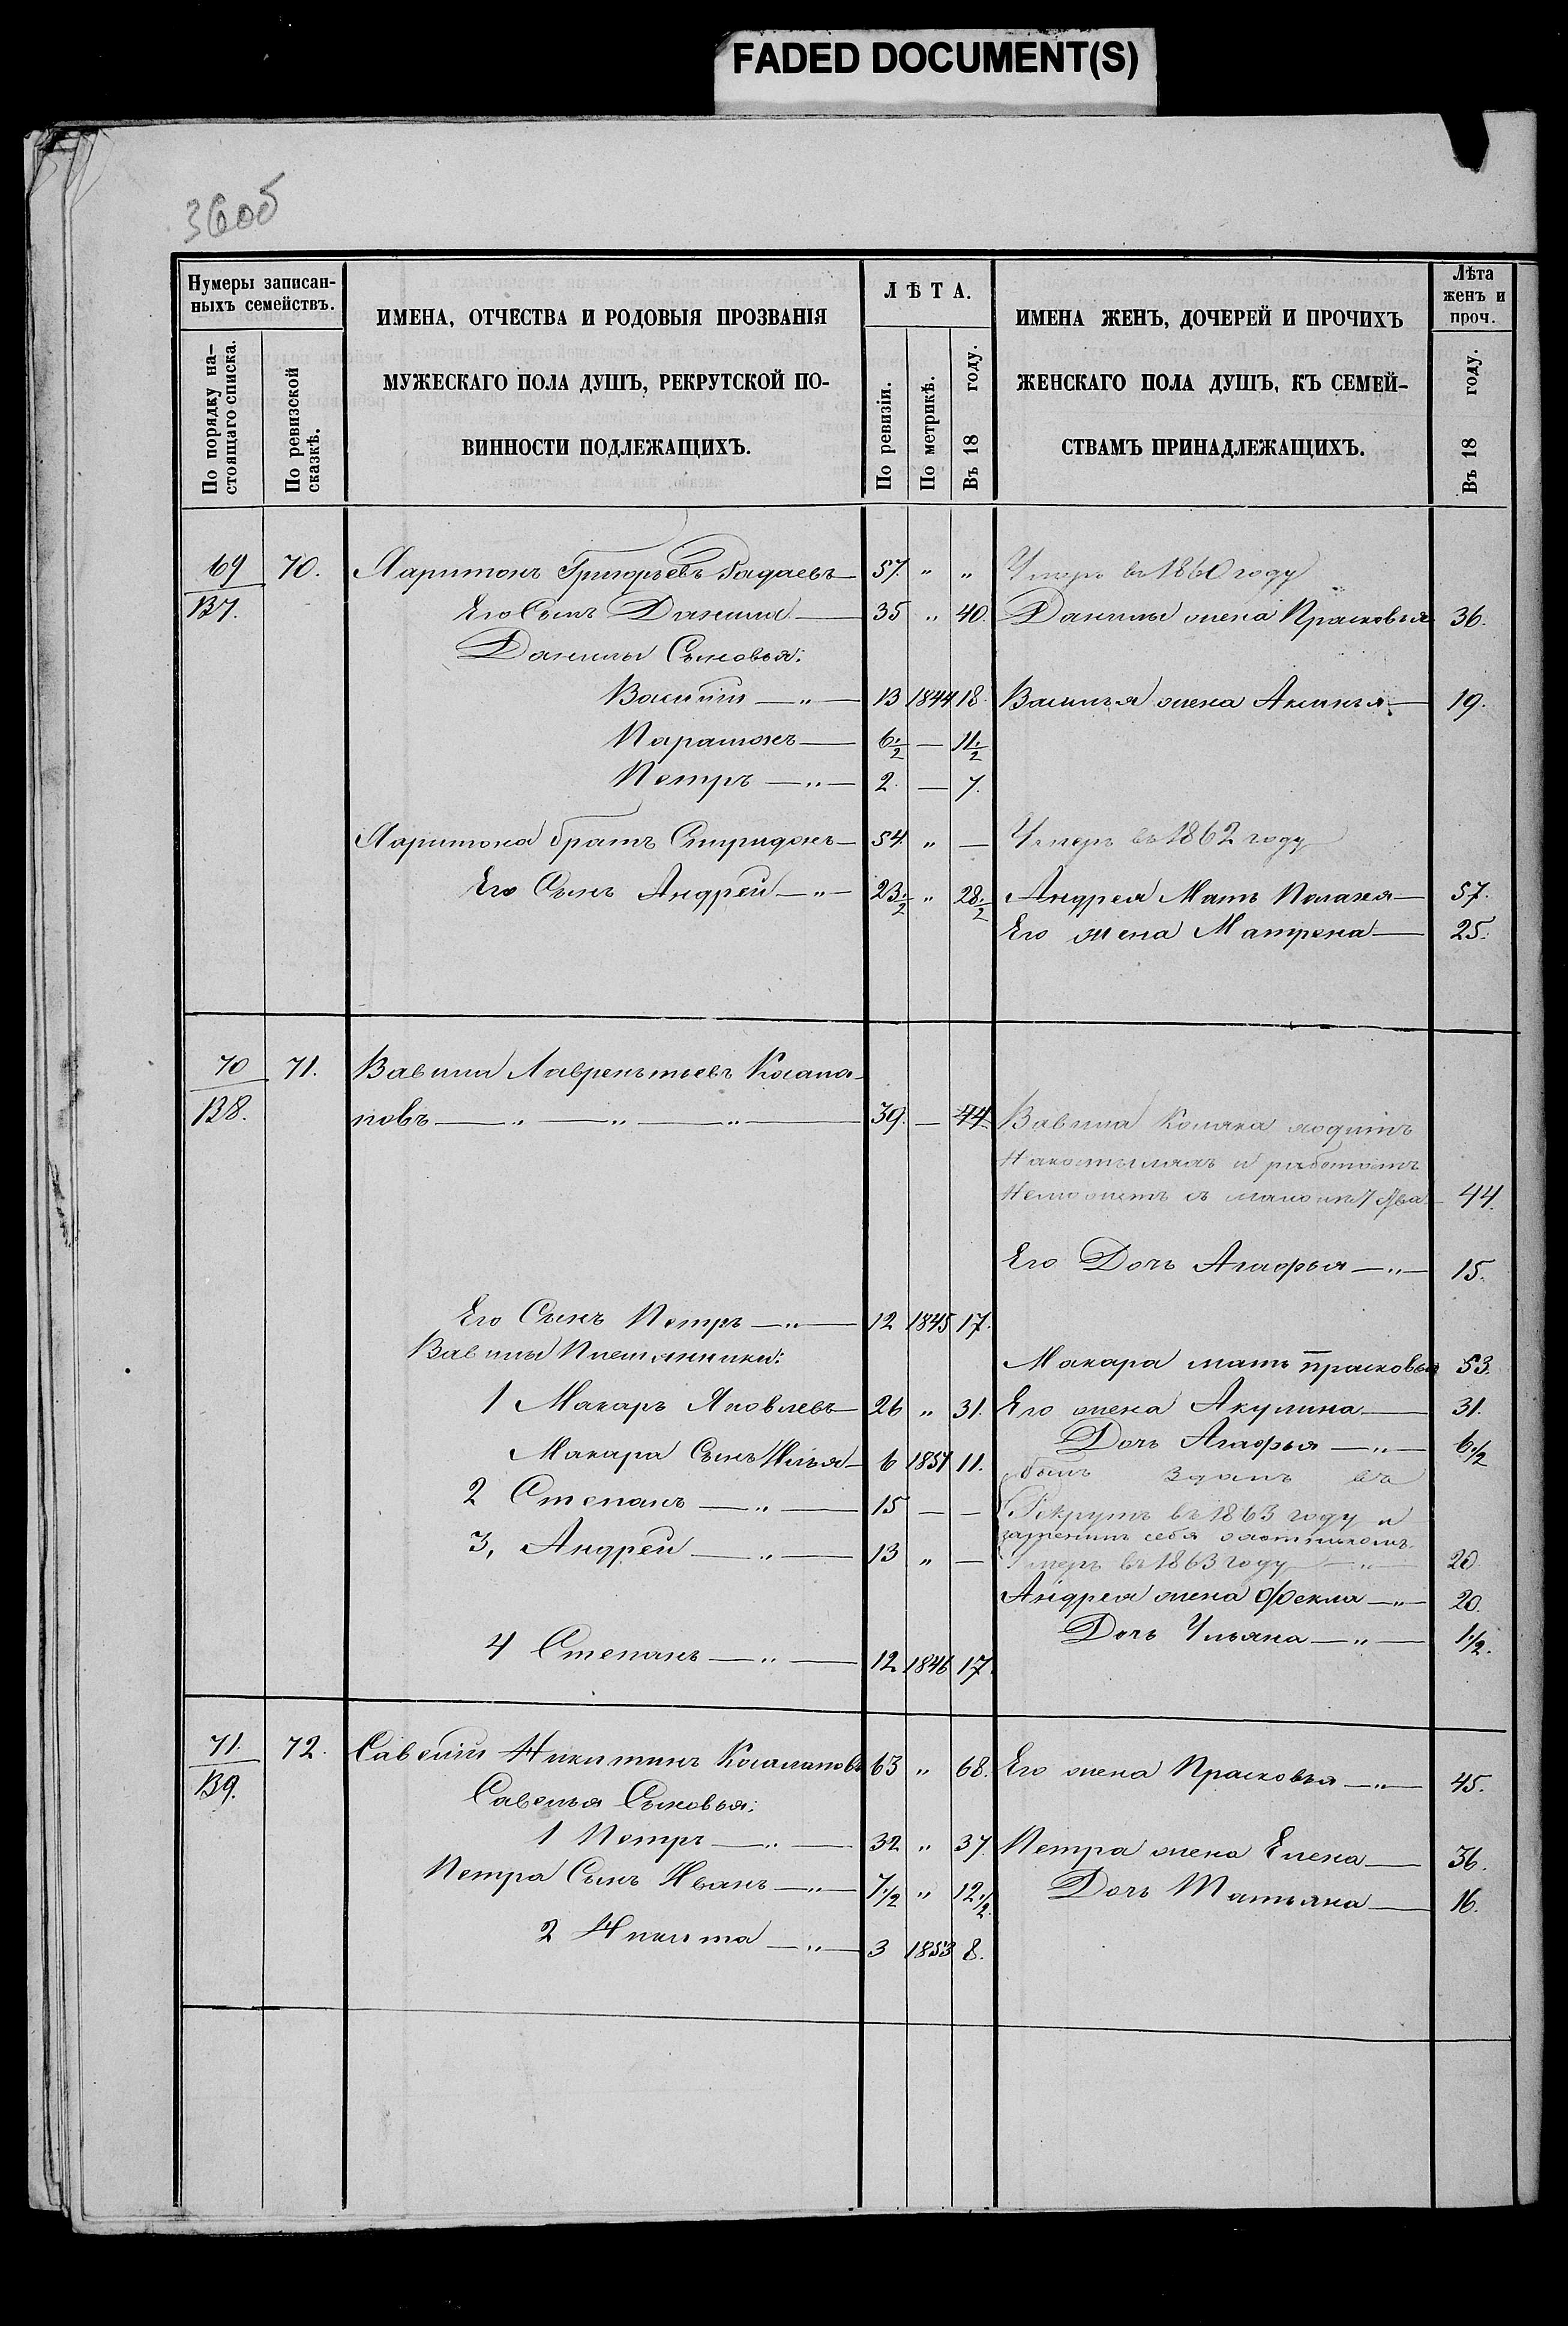 FADED DOCUMENT(S)
36об
Нумеры записан-
ныхъ семействъ.
По порядку на-
стоящаго списка.
По ревизской
сказкѣ.
ИМЕНА, ОТЧЕСТВА И РОДОВЫЯ ПРОЗВАНІЯ
МУЖЕСКАГО ПОЛА ДУШЪ, РЕКРУТСКОЙ ПО-
ВИННОСТИ ПОДЛЕЖАЩИХЪ.
ЛѢТА.
По ревизіи.
По метрикѣ.
Въ 18 году.
ИМЕНА ЖЕНЪ, ДОЧЕРЕЙ И ПРОЧИХЪ
ЖЕНСКАГО ПОЛА ДУШЪ, КЪ СЕМЕЙ-
СТВАМЪ ПРИНАДЛЕЖАЩИХЪ.
Лѣта
женъ и
проч.
Въ 18 году.
69 70. Харитонъ Григорьевъ 57. " " Умеръ въ 1860 году
137. Его Сынъ Данила 35 " 40. Данилы жена Прасковья 36.
Данилы Сыновья:
Василiй " 13 1844 18. Василья жена Аксинья 19.
Парамонъ 6 1/2 — 11 1/2
Петръ " 2 — 7.
Харитона братъ Спиридонъ 54 " — Умеръ въ 1862 году
Его Сынъ Андрей " 23 1/2 " 28 1/2 Андрея Мать Пелагея 57.
Его жена Матрена 25.
70 71. Вавила Лаврентьевъ
138. новъ " " " 39. — 44. Вавила Коляка ходитъ
Накостыляхъ и работать
Неможетъ 44.
Его Дочь Агафья " 15.
Его Сынъ Петръ " 12 1845 17.
Вавилы Племянники:
Макара мать прасковья 53.
1 Макаръ Яковлевъ 26 " 31. Его жена Акулина 31.
Макара Сынъ Илья 6 1851 11. Дочь Агафья " 6 1/2
былъ зданъ въ
2 Степанъ " 15 — — Рекруты въ 1863 году и
заменилъ себя охотникомъ
3, Андрей " 13 " — Умеръ въ 1863 году " 20
Андрея жена Фекла " 20.
Дочь Ульяна " 1 1/2.
4 Степанъ " 12 1846 17.
71. 72. Савелiй Никитинъ 63 " 68. Его жена Прасковья " 45.
139. Савелья Сыновья:
1 Петръ " 32 " 37. Петра жена Елена 36.
Петра Сынъ Иванъ " 7 1/2 " 12 1/2. Дочь Татьяна 16.
2 Никита " 3 1853 8.